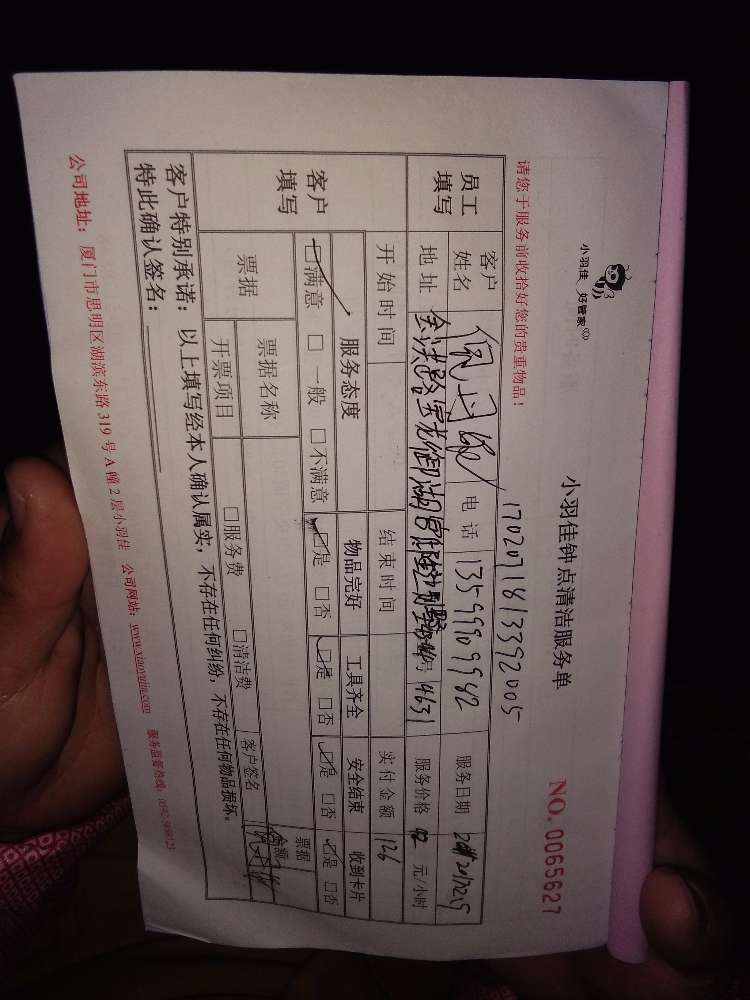 小羽佳 好管家
小羽佳钟点清洁服务单
NO. 0065627
1702071813392005
请您于服务前收拾好您的贵重物品！
员工填写
客户姓名
电话 13599909942
服务日期
地址
号 4631
服务价格 42 元/小时
开始时间
结束时间
实付金额 126
客户填写
服务态度 物品完好 工具齐全 安全结束 收到卡片
☑满意 □一般 □不满意 ☑是 □否 ☑是 □否 ☑是 □否 ☑是 □否
票据
票据名称
票据金额
开票项目 □服务费 □清洁费
客户签名
客户特别承诺：以上填写经本人确认属实，不存在任何纠纷，不存在任何物品损坏。
特此确认签名：
公司地址：厦门市思明区湖滨东路 319 号 A 幢 2 层小羽佳 公司网站：www.xiaoyujia.com 服务监督热线：